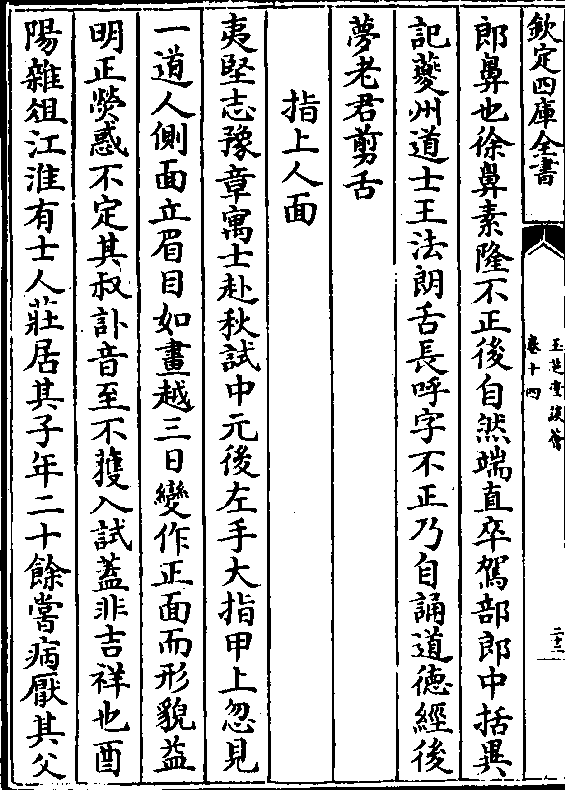 欽定四庫全書
玉芝堂談薈
卷十四
二十二
郎鼻也徐鼻素隆不正後自然端直卒駕部郎中括異
記夔州道士王法朗舌長呼字不正乃自誦道德經後
夢老君剪舌
指上人面
夷堅志豫章寓士赴秋試中元後左手大指甲上忽見
一道人側面立眉目如畫越三日變作正面而形貌益
明正熒惑不定其叔訃音至不獲入試蓋非吉祥也酉
陽雜俎江淮有士人莊居其子年二十餘嘗病厭其父